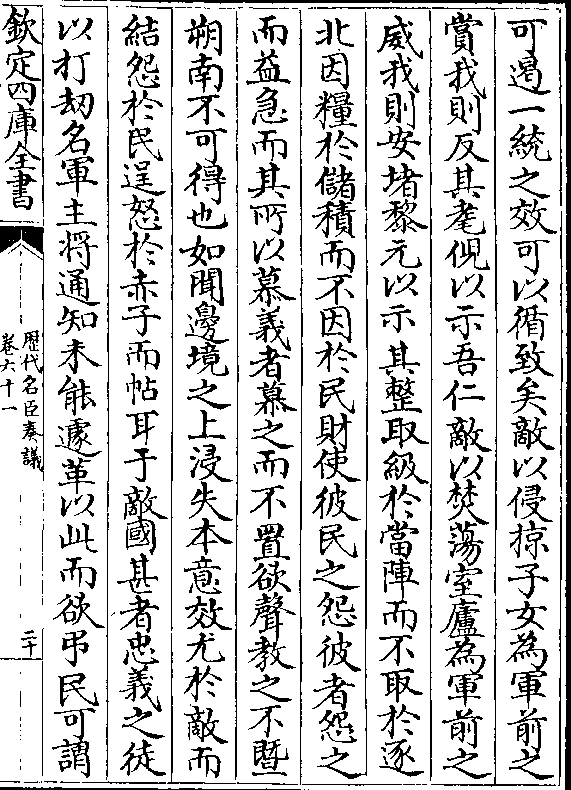 可遏一統之效可以循致矣敵以侵掠子女為軍前之
賞我則反其耄倪以示吾仁敵以焚蕩室廬為軍前之
威我則安堵黎元以示其整取級於當陣而不取於逐
北因糧於儲積而不因於民財使彼民之怨彼者怨之
而益急而其所以慕義者慕之而不置欲聲教之不曁
朔南不可得也如聞邊境之上浸失本意效尤於敵而
結怨於民逞怒於赤子而帖耳于敵國甚者忠義之徒
以打刼名軍主將通知未能遽革以此而欲弔民可謂
欽定四庫全書
歴代名臣奏議
卷六十一
二十